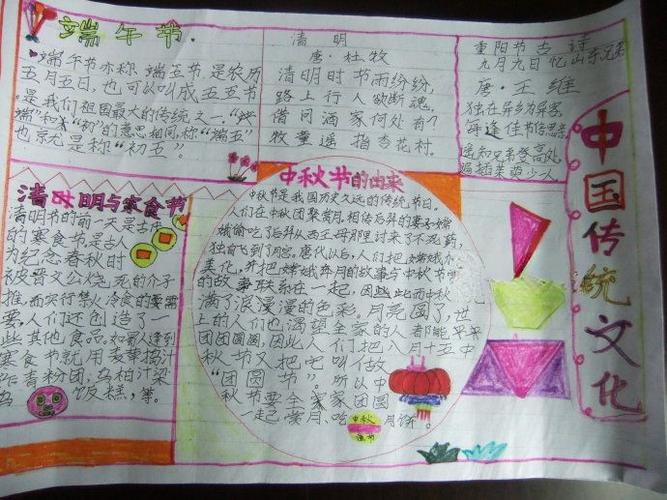 端午节.
端午节亦称端五节,是农历
五月五日,也可以叫成五五节
是我们祖国最大的传统之一,
端”和“初”的意思相同,称“端五”
也就是称“初五”。
清明
唐·杜牧
清明时节雨纷纷,
路上行人欲断魂,
借问酒家何处有?
牧童遥指杏花村。
重阳节古诗
九月九日忆山东兄弟
唐·王维
独在异乡为异客,
每逢佳节倍思亲
遥知兄弟登高处,
遍插茱萸少一人。
中国传统文化
清明与寒食节
清明节的前一天是古代
的寒食节是古人
的纪念春秋时
被晋文公烧死的介子
推,而实行禁火冷食的
要,人们还创造了一
些其他食品。如
寒食节就用
作青粉团,
为 饭糕,等。
中秋节的由来
中秋节是我国历史久远的传统节日。
人们在中秋团聚赏月,相传后羿的妻子嫦
娥偷吃了后羿从西王母那里讨来了不死药,
独自飞到了月宫。唐代以后,人们把嫦娥
美化,并把嫦娥奔月的故事与中秋节
的故事联系在一起,因些此而中秋
满了浪漫漫的色彩。月亮圆了,世
上的人们也渴望全家的人都能平平
团团圆圆,因此人们把八月十五中
秋节又把它叫做
“团圆节”。所以中
秋节要全家家团圆
一起赏月、吃月饼。
中秋